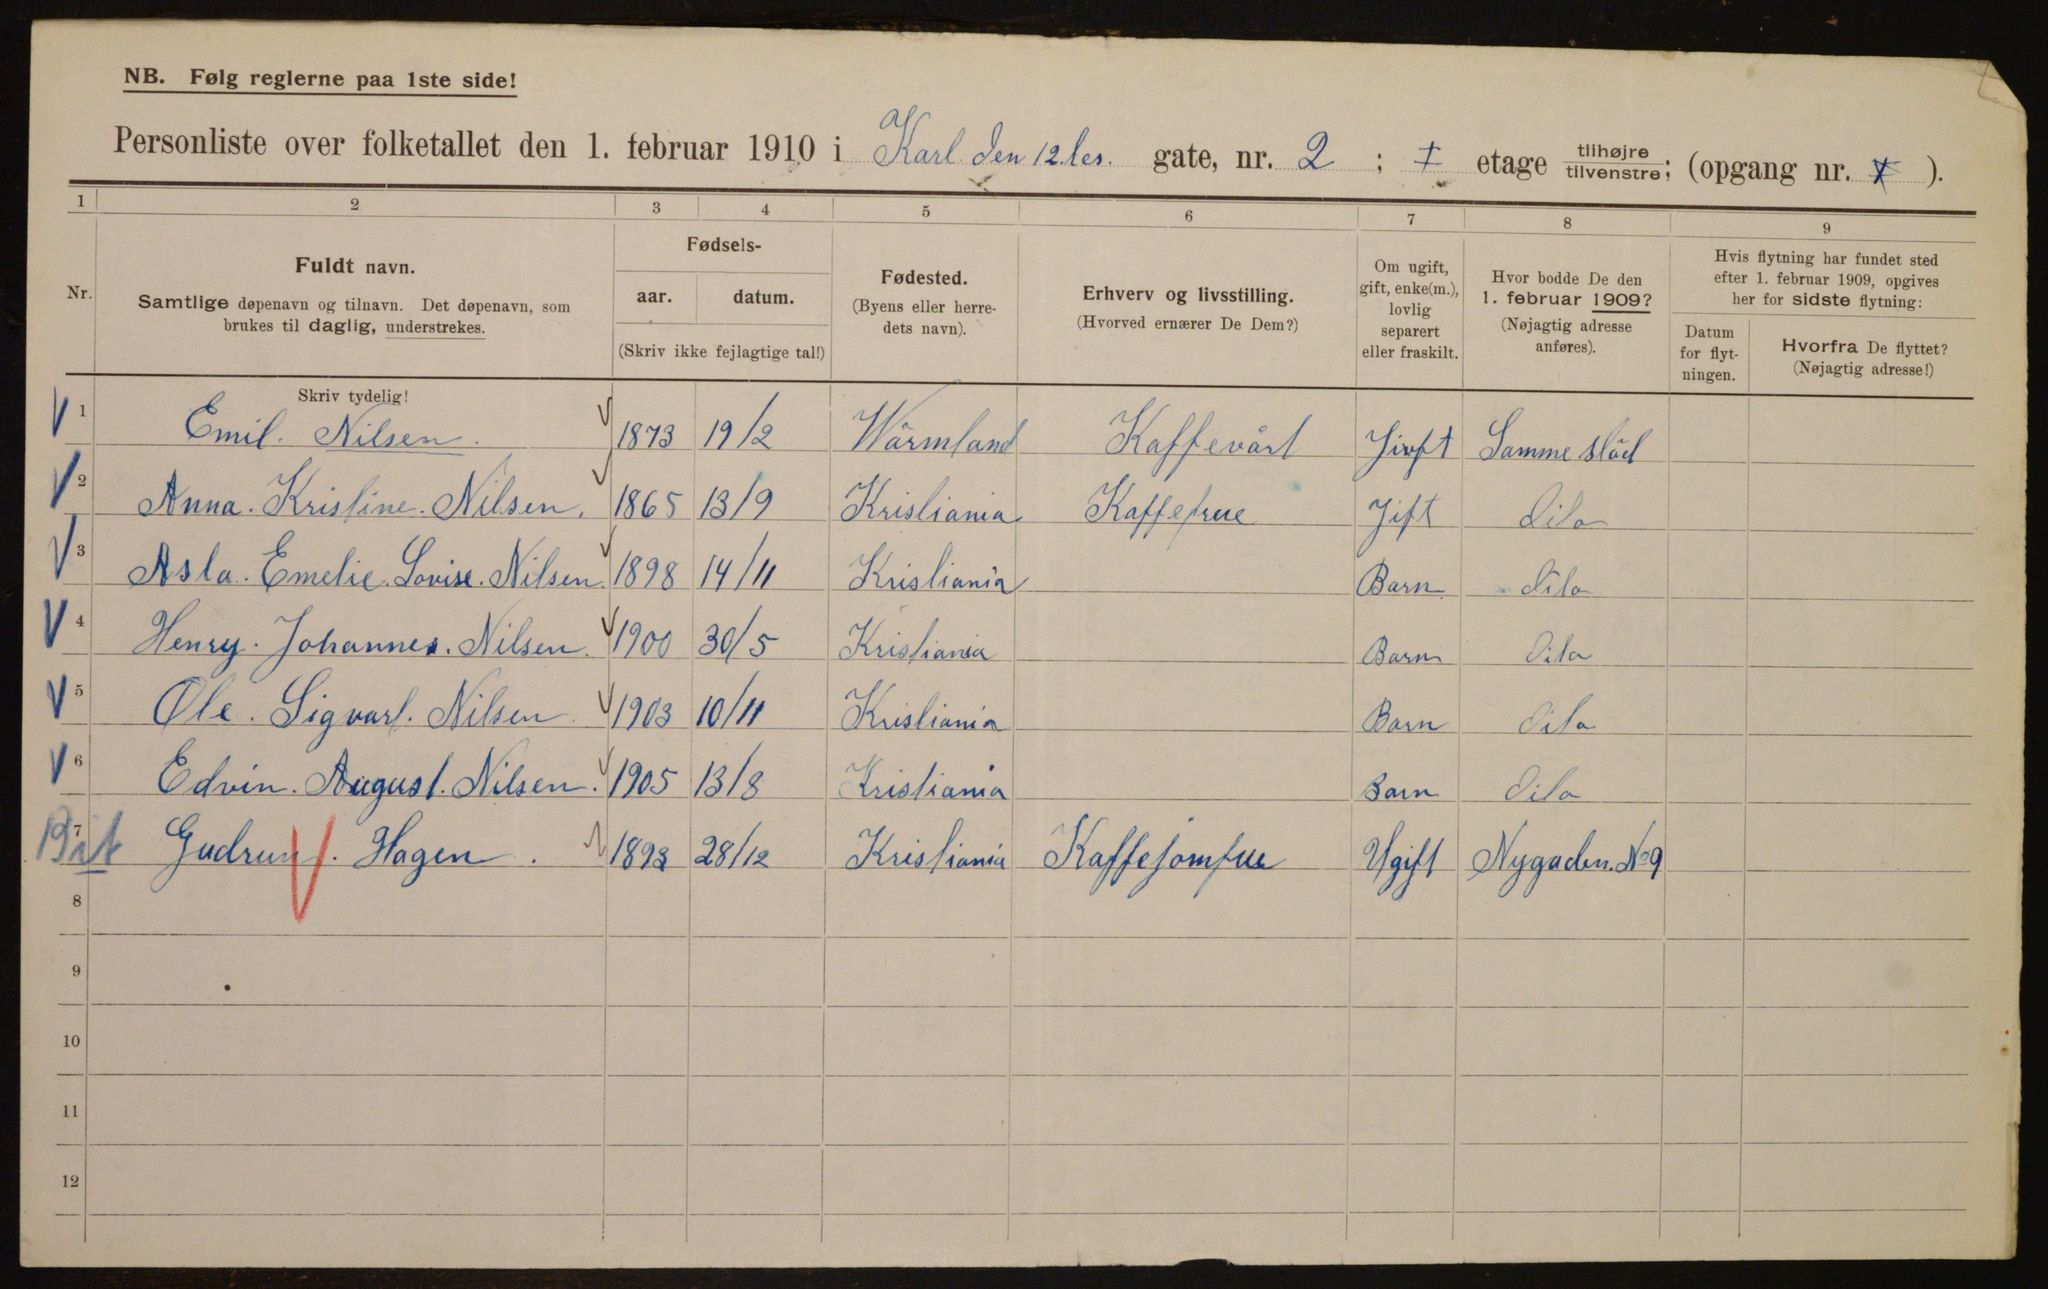 NB. Følg reglerne paa 1ste side!
Personliste over folketallet den 1. februar 1910 i Karl den 12.tes. gate, nr. 2 ; I etage tilhøjre/tilvenstre; (opgang nr. ).
1 2 3 4 5 6 7 8 9
Nr. Fuldt navn. Samtlige døpenavn og tilnavn. Det døpenavn, som brukes til daglig, understrekes.
Fødsels- aar. datum. (Skriv ikke fejlagtige tal!)
Fødested. (Byens eller herredets navn).
Erhverv og livsstilling. (Hvorved ernærer De Dem?)
Om ugift, gift, enke(m.), lovlig separert eller fraskilt.
Hvor bodde De den 1. februar 1909? (Nøjagtig adresse anføres).
Hvis flytning har fundet sted efter 1. februar 1909, opgives her for sidste flytning:
Datum for flytningen. Hvorfra De flyttet? (Nøjagtig adresse!)
Skriv tydelig!
1 Emil. Nilsen. 1873 19/2 Wärmland Kaffevärt Jivft Samme städ
2 Anna. Kristine. Nilsen. 1865 13/9 Kristiania Kaffefrue Jift Dito
3 Asta. Emelie. Lovise. Nilsen. 1898 14/11 Kristiania Barn Dito
4 Henry. Johannes. Nilsen. 1900 30/5 Kristiania Barn Dito
5 Ole. Sigvart. Nilsen. 1903 10/11 Kristiania Barn Dito
6 Edvin. August. Nilsen. 1905 13/8 Kristiania Barn Dito
7 Gudrun. Hagen. 1893 28/12 Kristiania Kaffejomfrue Ugift Nygaden. No 9
8
9
10
11
12